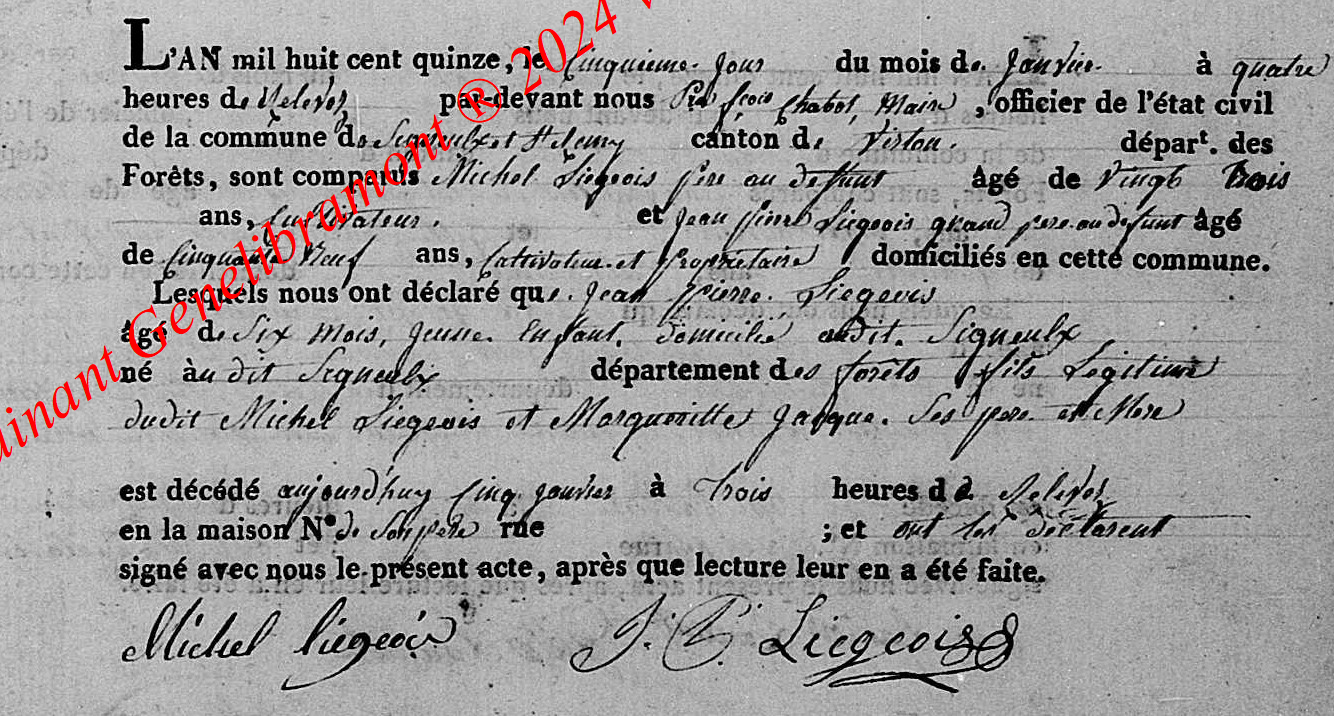 L'AN mil huit cent quinze, le Cinquieme jour du mois de Janvier à quatre
heures de Relevez par-devant nous Pre fçois Chabot, Maire, officier de l'état civil
de la commune de Signeulx et St Remy canton de Virton. départ. des
Forêts, sont comparus Michel Liegeois pere au defunt Agé de Vingt trois
ans, Cultivateur. et Jean Pierre Liegeois grand pere au defunt Agé
de Cinquante Neuf ans, Cultivateur et Proprietaire domiciliés en cette commune.
Lesquels nous ont déclaré que Jean Pierre Liegeois
Agé de Six mois, jeune Enfant, domicilié audit Signeulx
né àudit Signeulx département des forêts fils Legitime
dudit Michel Liegeois et Margueritte Jacque. Ses pere et Mere
est décédé aujourd'huy Cinq janvier à trois heures de Relevez
en la maison N° de Son pere rue ; et ont les declarent
signé avec nous le présent acte, après que lecture leur en a été faite.
Michel liegeois J. P. Liegeois
inant Genelibramont ® 2024